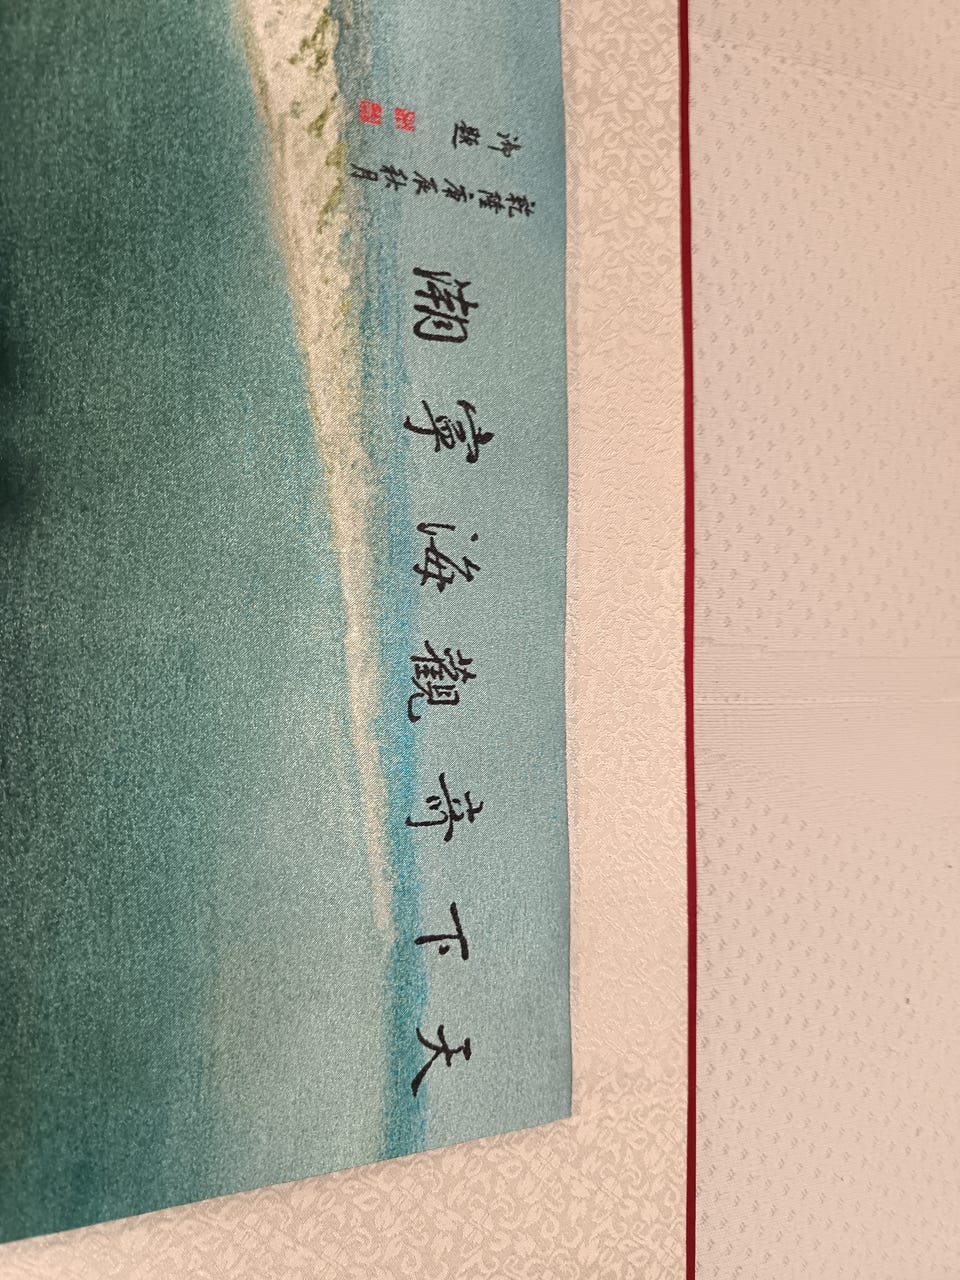 天下奇觀海寧潮
乾隆庚辰秋月
御題